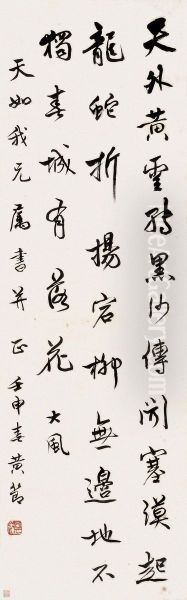 天外黃雲雜黑沙傳聞塞漠起
龍蛇折揚宕柳無邊地不
獨春城有落花 大風
天如我兄屬書并正 壬申春黃節